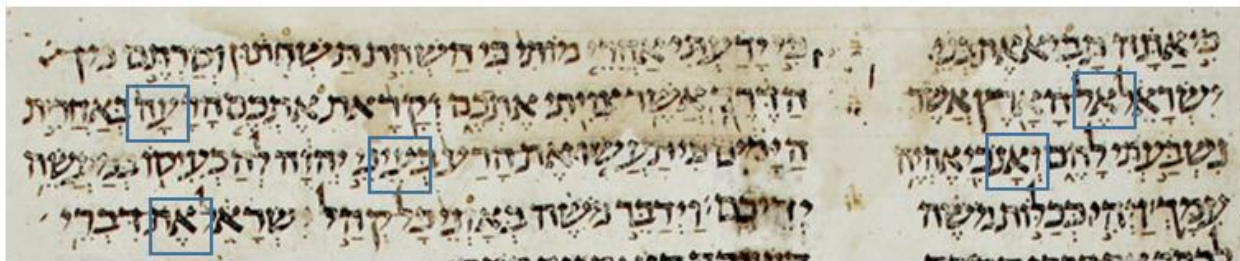 כי אתה תביא את בני
ישראל אל הארץ אשר
נשבעתי להם ואנכי אהיה
עמך ויהי ככלות משה
כי ידעתי אחרי מותי כי השחת תשחתון וסרתם מן
הדרך אשר צויתי אתכם וקראת אתכם הרעה באחרית
הימים כי תעשו את הרע בעיני יהוה להכעיסו במעשה
ידיכם וידבר משה באזני כל קהל ישראל את דברי